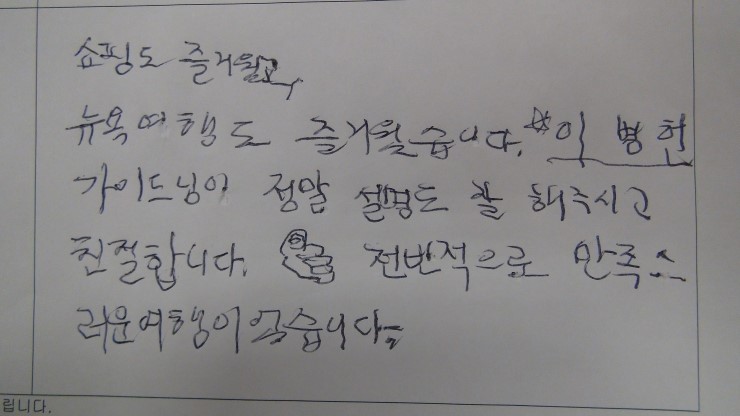 쇼핑도 즐거웠고,
뉴욕여행도 즐거웠습니다. ☆이 병헌
가이드님이 정말 설명도 잘 해주시고
친절합니다. 전반적으로 만족스
러운여행이였습니다.
립니다.